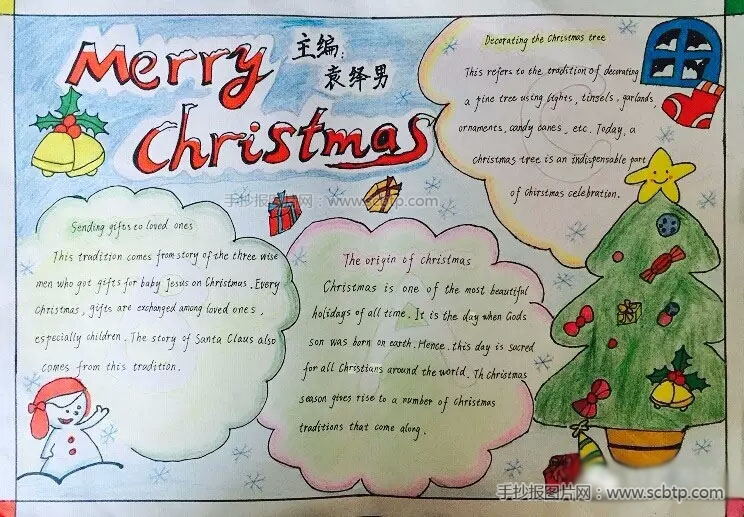 Merry
Christmas
主编:
袁绎男
Decorating the Christmas tree
This refers to the tradition of decorating
a pine tree using lights, tinsels, garlands,
ornaments, candy canes, etc. Today, a
christmas tree is an indispensable part
of christmas celebration.
手抄报图片网:www.scbtp.com
Sending gifts to loved ones
This tradition comes from story of the three wise
men who got gifts for baby Jesus on Christmas. Every
Christmas, gifts are exchanged among loved ones,
especially children. The story of Santa Claus also
comes from this tradition.
The origin of christmas
Christmas is one of the most beautiful
holidays of all time. It is the day when Gods
son was born on earth. Hence, this day is sacred
for all Christians around the world. Th Christmas
season gives rise to a number of Christmas
traditions that come along.
手抄报图片网:www.scbtp.com